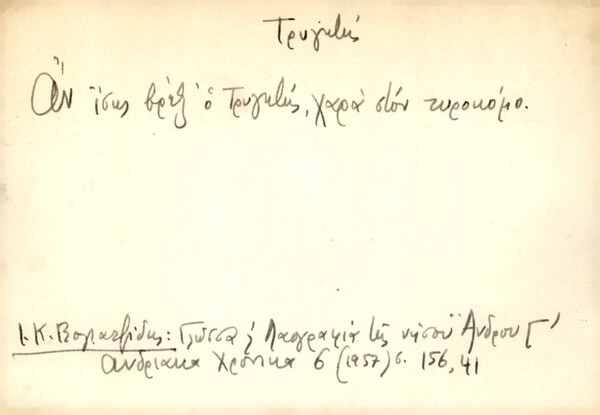 Τρυγητής
Ἂν ἴσως βρέξ' ὁ Τρυγητής, χαρὰ στὸν τυροκόμο.
Ι. Κ. Βογιατζίδης: Γλῶσσα & Λαογραφία τῆς νήσου Ἄνδρου Γ'
Ανδριακα Χρονικα 6 (1957) σ. 156, 41